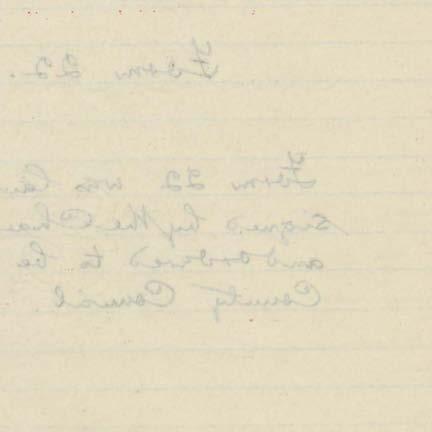 Form 22.
Form 22 was lai
signed by the Chai
and ordered to be
County Council.